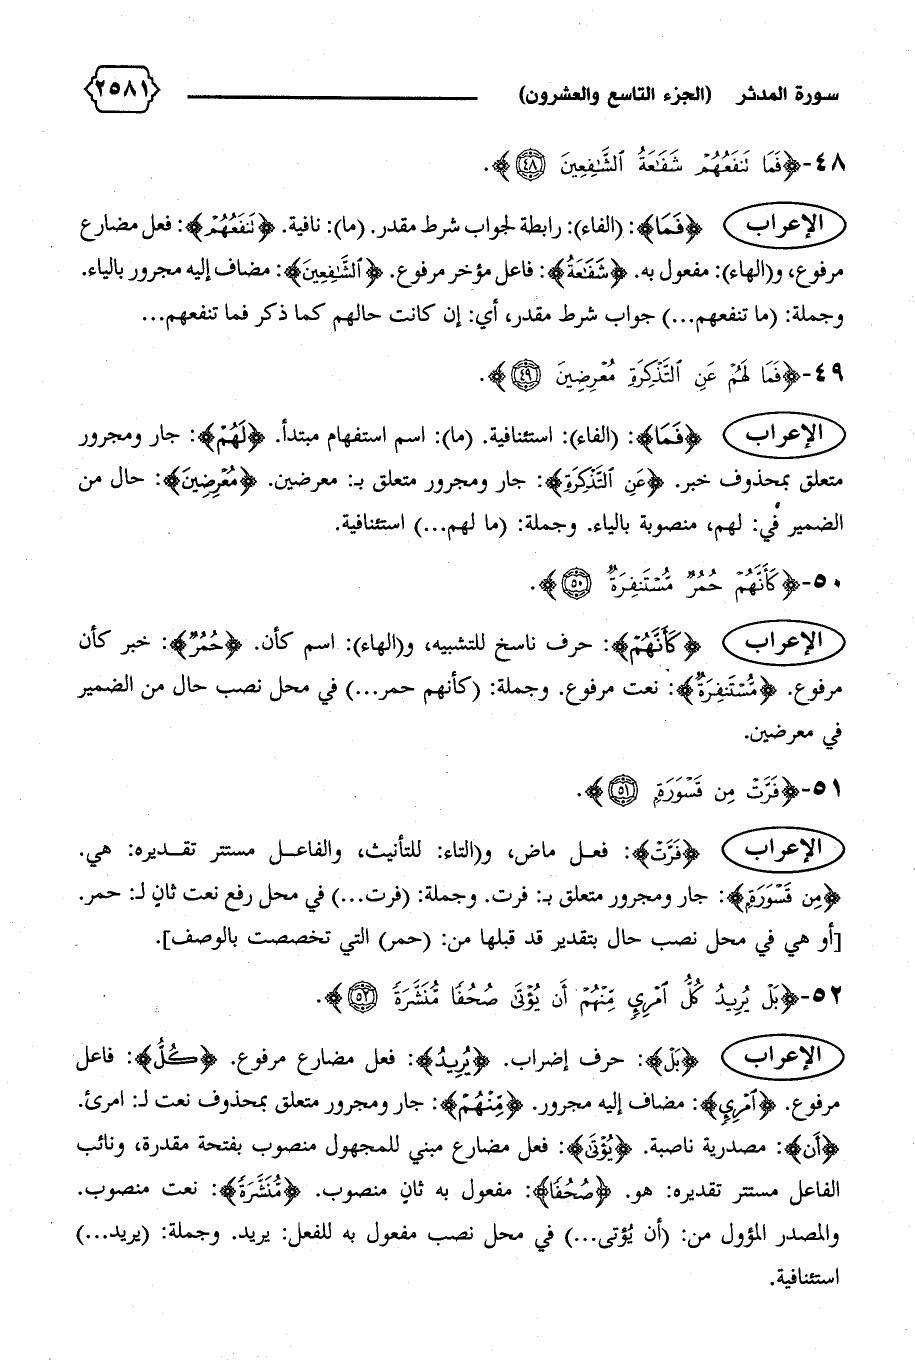 سورة المدثر (الجزء التاسع والعشرون) ٢٥٨١
٤٨-﴿فَمَا نَنفَعُهُمْ شَفَاعَةُ الشَّافِعِينَ ٤٨﴾.
الإعراب ﴿فَمَا﴾: (الفاء): رابطة لجواب شرط مقدر. (ما): نافية. ﴿نَنفَعُهُمْ﴾: فعل مضارع
مرفوع، و(الهاء): مفعول به. ﴿شَفَاعَةُ﴾: فاعل مؤخر مرفوع. ﴿الشَّافِعِينَ﴾: مضاف إليه مجرور بالياء.
وجملة: (ما تنفعهم...) جواب شرط مقدر، أي: إن كانت حالهم كما ذكر فما تنفعهم...
٤٩-﴿فَمَا لَهُمْ عَنِ التَّذْكِرَةِ مُعْرِضِينَ ٤٩﴾.
الإعراب ﴿فَمَا﴾: (الفاء): استئنافية. (ما): اسم استفهام مبتدأ. ﴿لَهُمْ﴾: جار ومجرور
متعلق بمحذوف خبر. ﴿عَنِ التَّذْكِرَةِ﴾: جار ومجرور متعلق بـ: معرضين. ﴿مُعْرِضِينَ﴾: حال من
الضمير في: لهم، منصوبة بالياء. وجملة: (ما لهم...) استئنافية.
٥٠-﴿كَأَنَّهُمْ حُمُرٌ مُّسْتَنفِرَةٌ ٥٠﴾.
الإعراب ﴿كَأَنَّهُمْ﴾: حرف ناسخ للتشبيه، و(الهاء): اسم كأن. ﴿حُمُرٌ﴾: خبر كأن
مرفوع. ﴿مُّسْتَنفِرَةٌ﴾: نعت مرفوع. وجملة: (كأنهم حمر...) في محل نصب حال من الضمير
في معرضين.
٥١-﴿فَرَّتْ مِن قَسْوَرَةٍ ٥١﴾.
الإعراب ﴿فَرَّتْ﴾: فعل ماض، و(التاء: للتأنيث، والفاعل مستتر تقديره: هي.
﴿مِن قَسْوَرَةٍ﴾: جار ومجرور متعلق بـ: فرت. وجملة: (فرت...) في محل رفع نعت ثانٍ لـ: حمر.
[أو هي في محل نصب حال بتقدير قد قبلها من: (حمر) التي تخصصت بالوصف].
٥٢-﴿بَلْ يُرِيدُ كُلُّ امْرِيٍ مِّنْهُمْ أَن يُؤْتَى صُحُفًا مُّنَشَّرَةً ٥٢﴾.
الإعراب ﴿بَلْ﴾: حرف إضراب. ﴿يُرِيدُ﴾: فعل مضارع مرفوع. ﴿كُلُّ﴾: فاعل
مرفوع. ﴿امْرِيٍ﴾: مضاف إليه مجرور. ﴿مِّنْهُمْ﴾: جار ومجرور متعلق بمحذوف نعت لـ: امرئ.
﴿أَن﴾: مصدرية ناصبة. ﴿يُؤْتَى﴾: فعل مضارع مبني للمجهول منصوب بفتحة مقدرة، ونائب
الفاعل مستتر تقديره: هو. ﴿صُحُفًا﴾: مفعول به ثانٍ منصوب. ﴿مُّنَشَّرَةً﴾: نعت منصوب.
والمصدر المؤول من: (أن يُؤتى...) في محل نصب مفعول به للفعل: يريد. وجملة: (يريد...)
استئنافية.